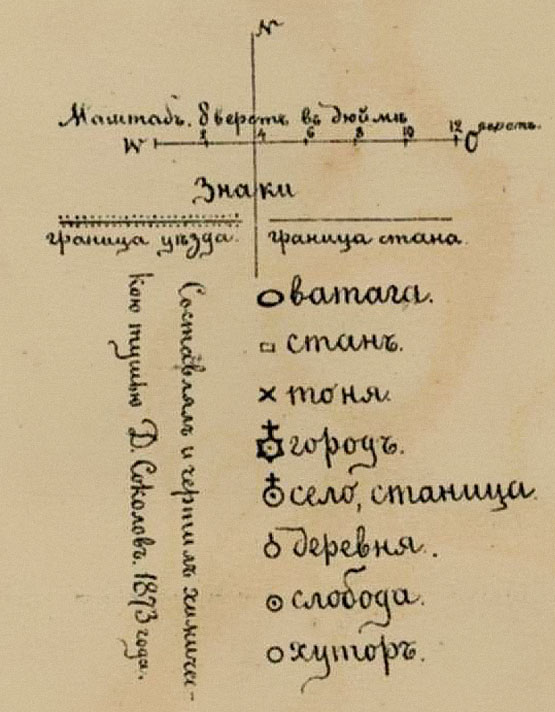 N
Маштабъ. 8 верстъ въ дюймѣ
W 2 4 6 8 10 12 верстъ. O
Знаки
граница уѣзда. граница стана.
ватага.
станъ.
тоня.
городъ.
село, станица.
деревня.
слобода.
хуторъ.
Составлялъ и чертилъ химичес-
кою тушью Д. Соколовъ. 1873 года.